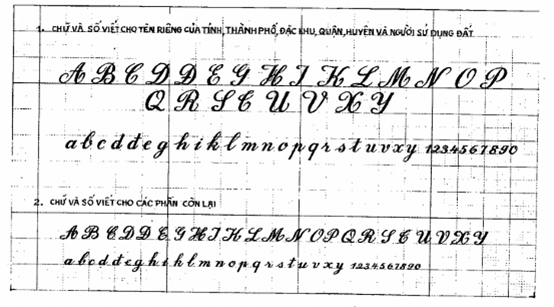 1. CHỮ VÀ SỐ VIẾT CHO TÊN RIÊNG CỦA TỈNH, THÀNH PHỐ, ĐẶC KHU, QUẬN, HUYỆN VÀ NGƯỜI SỬ DỤNG ĐẤT
A B C D Đ E G H I K L M N O P
Q R S T U V X Y
a b c d đ e g h i k l m n o p q r s t u v x y 1234567890
2. CHỮ VÀ SỐ VIẾT CHO CÁC PHẦN CÒN LẠI
A B C D Đ E G H I K L M N O P Q R S T U V X Y
a b c d đ e g h i k l m n o p q r s t u v x y 1234567890